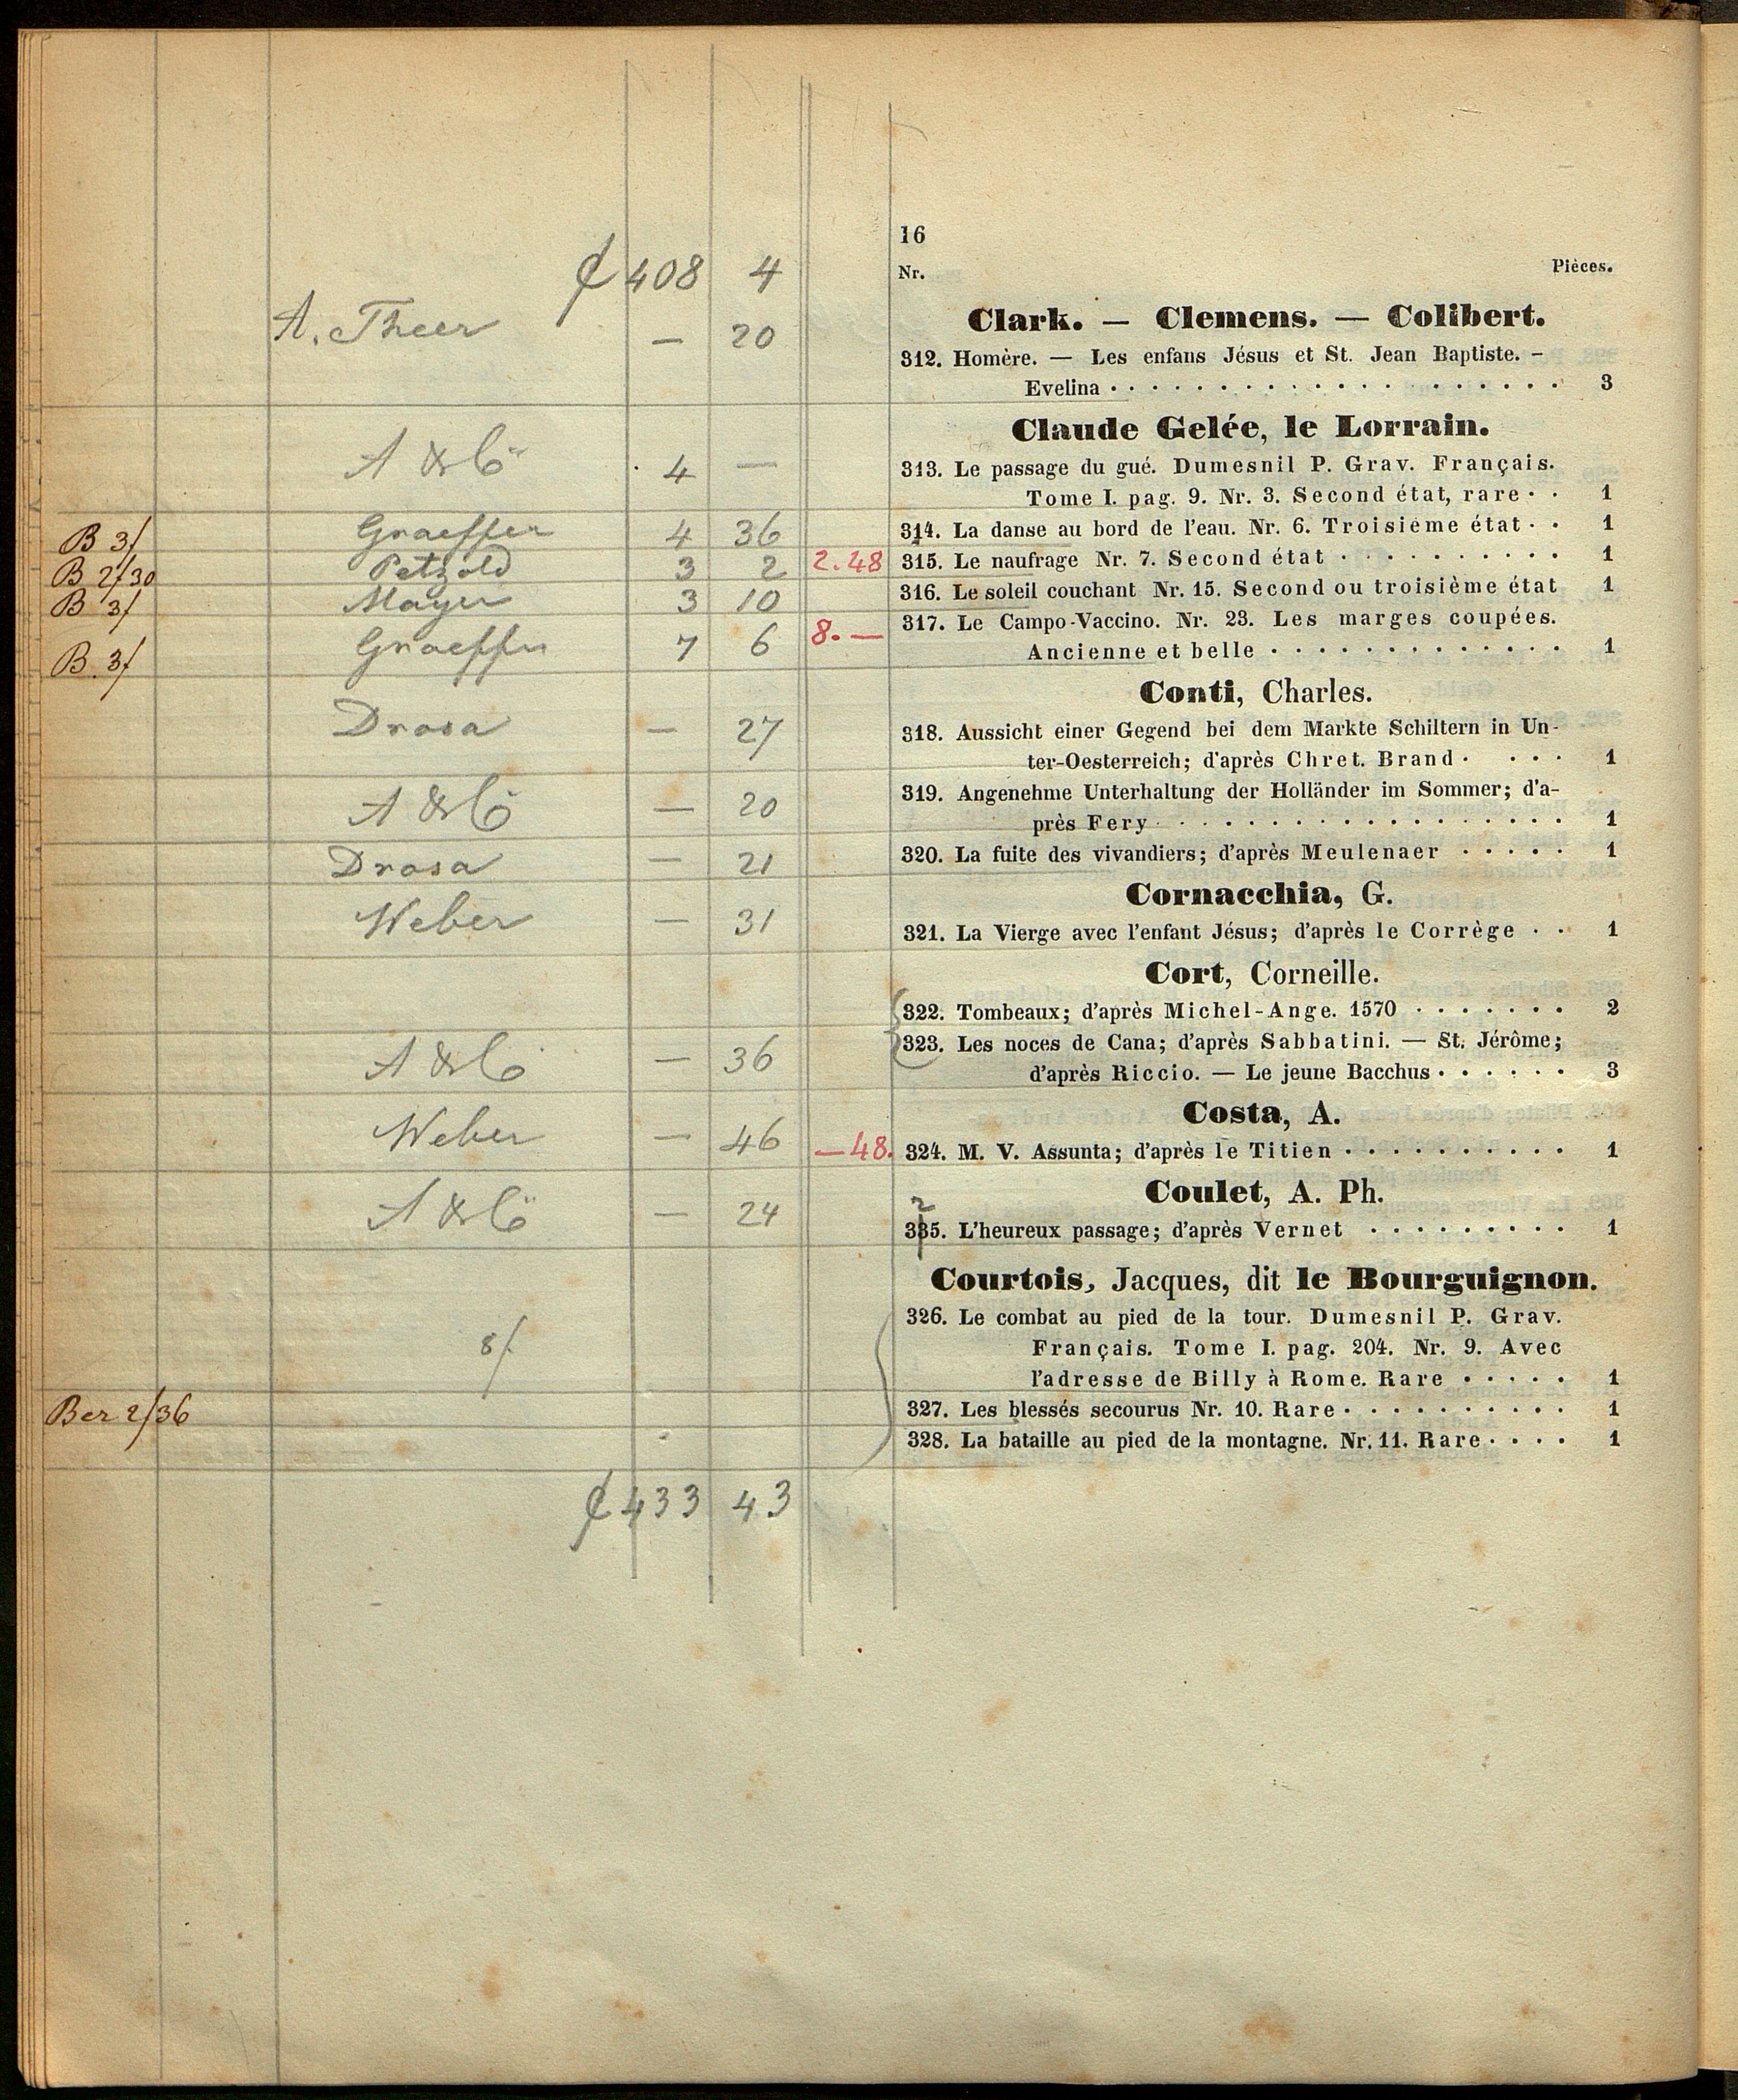 16
Nr. Pièces.
₡ 408 4
A. Theer — 20
Clark. — Clemens. — Colibert.
312. Homère. — Les enfans Jésus et St. Jean Baptiste. –
Evelina 3
Claude Gelée, le Lorrain.
A & Cö 4 —
313. Le passage du gué. Dumesnil P. Grav. Français.
Tome I. pag. 9. Nr. 3. Second état, rare 1
B 3/ Graeffer 4 36
314. La danse au bord de l'eau. Nr. 6. Troisième état 1
B 2/30 Petzold 3 2 2.48
315. Le naufrage Nr. 7. Second état 1
B 3/ Mayer 3 10
316. Le soleil couchant Nr. 15. Second ou troisième état 1
B. 3/ Graeffer 7 6 8.—
317. Le Campo-Vaccino. Nr. 23. Les marges coupées.
Ancienne et belle 1
Conti, Charles.
Drosa — 27
318. Aussicht einer Gegend bei dem Markte Schiltern in Un-
ter-Oesterreich; d'après Chret. Brand 1
A & Cö — 20
319. Angenehme Unterhaltung der Holländer im Sommer; d'a-
près Fery 1
Drosa — 21
320. La fuite des vivandiers; d'après Meulenaer 1
Cornacchia, G.
Weber — 31
321. La Vierge avec l'enfant Jésus; d'après le Corrège 1
Cort, Corneille.
322. Tombeaux; d'après Michel-Ange. 1570 2
A & Cö — 36
323. Les noces de Cana; d'après Sabbatini. — St. Jérôme;
d'après Riccio. — Le jeune Bacchus 3
Costa, A.
Weber — 46 —48.
324. M. V. Assunta; d'après le Titien 1
Coulet, A. Ph.
A & Cö — 24
2
335. L'heureux passage; d'après Vernet 1
Courtois, Jacques, dit le Bourguignon.
326. Le combat au pied de la tour. Dumesnil P. Grav.
Français. Tome I. pag. 204. Nr. 9. Avec
l'adresse de Billy à Rome. Rare 1
8/.
Ber 2/36
327. Les blessés secourus Nr. 10. Rare 1
328. La bataille au pied de la montagne. Nr. 11. Rare 1
₡ 433 43